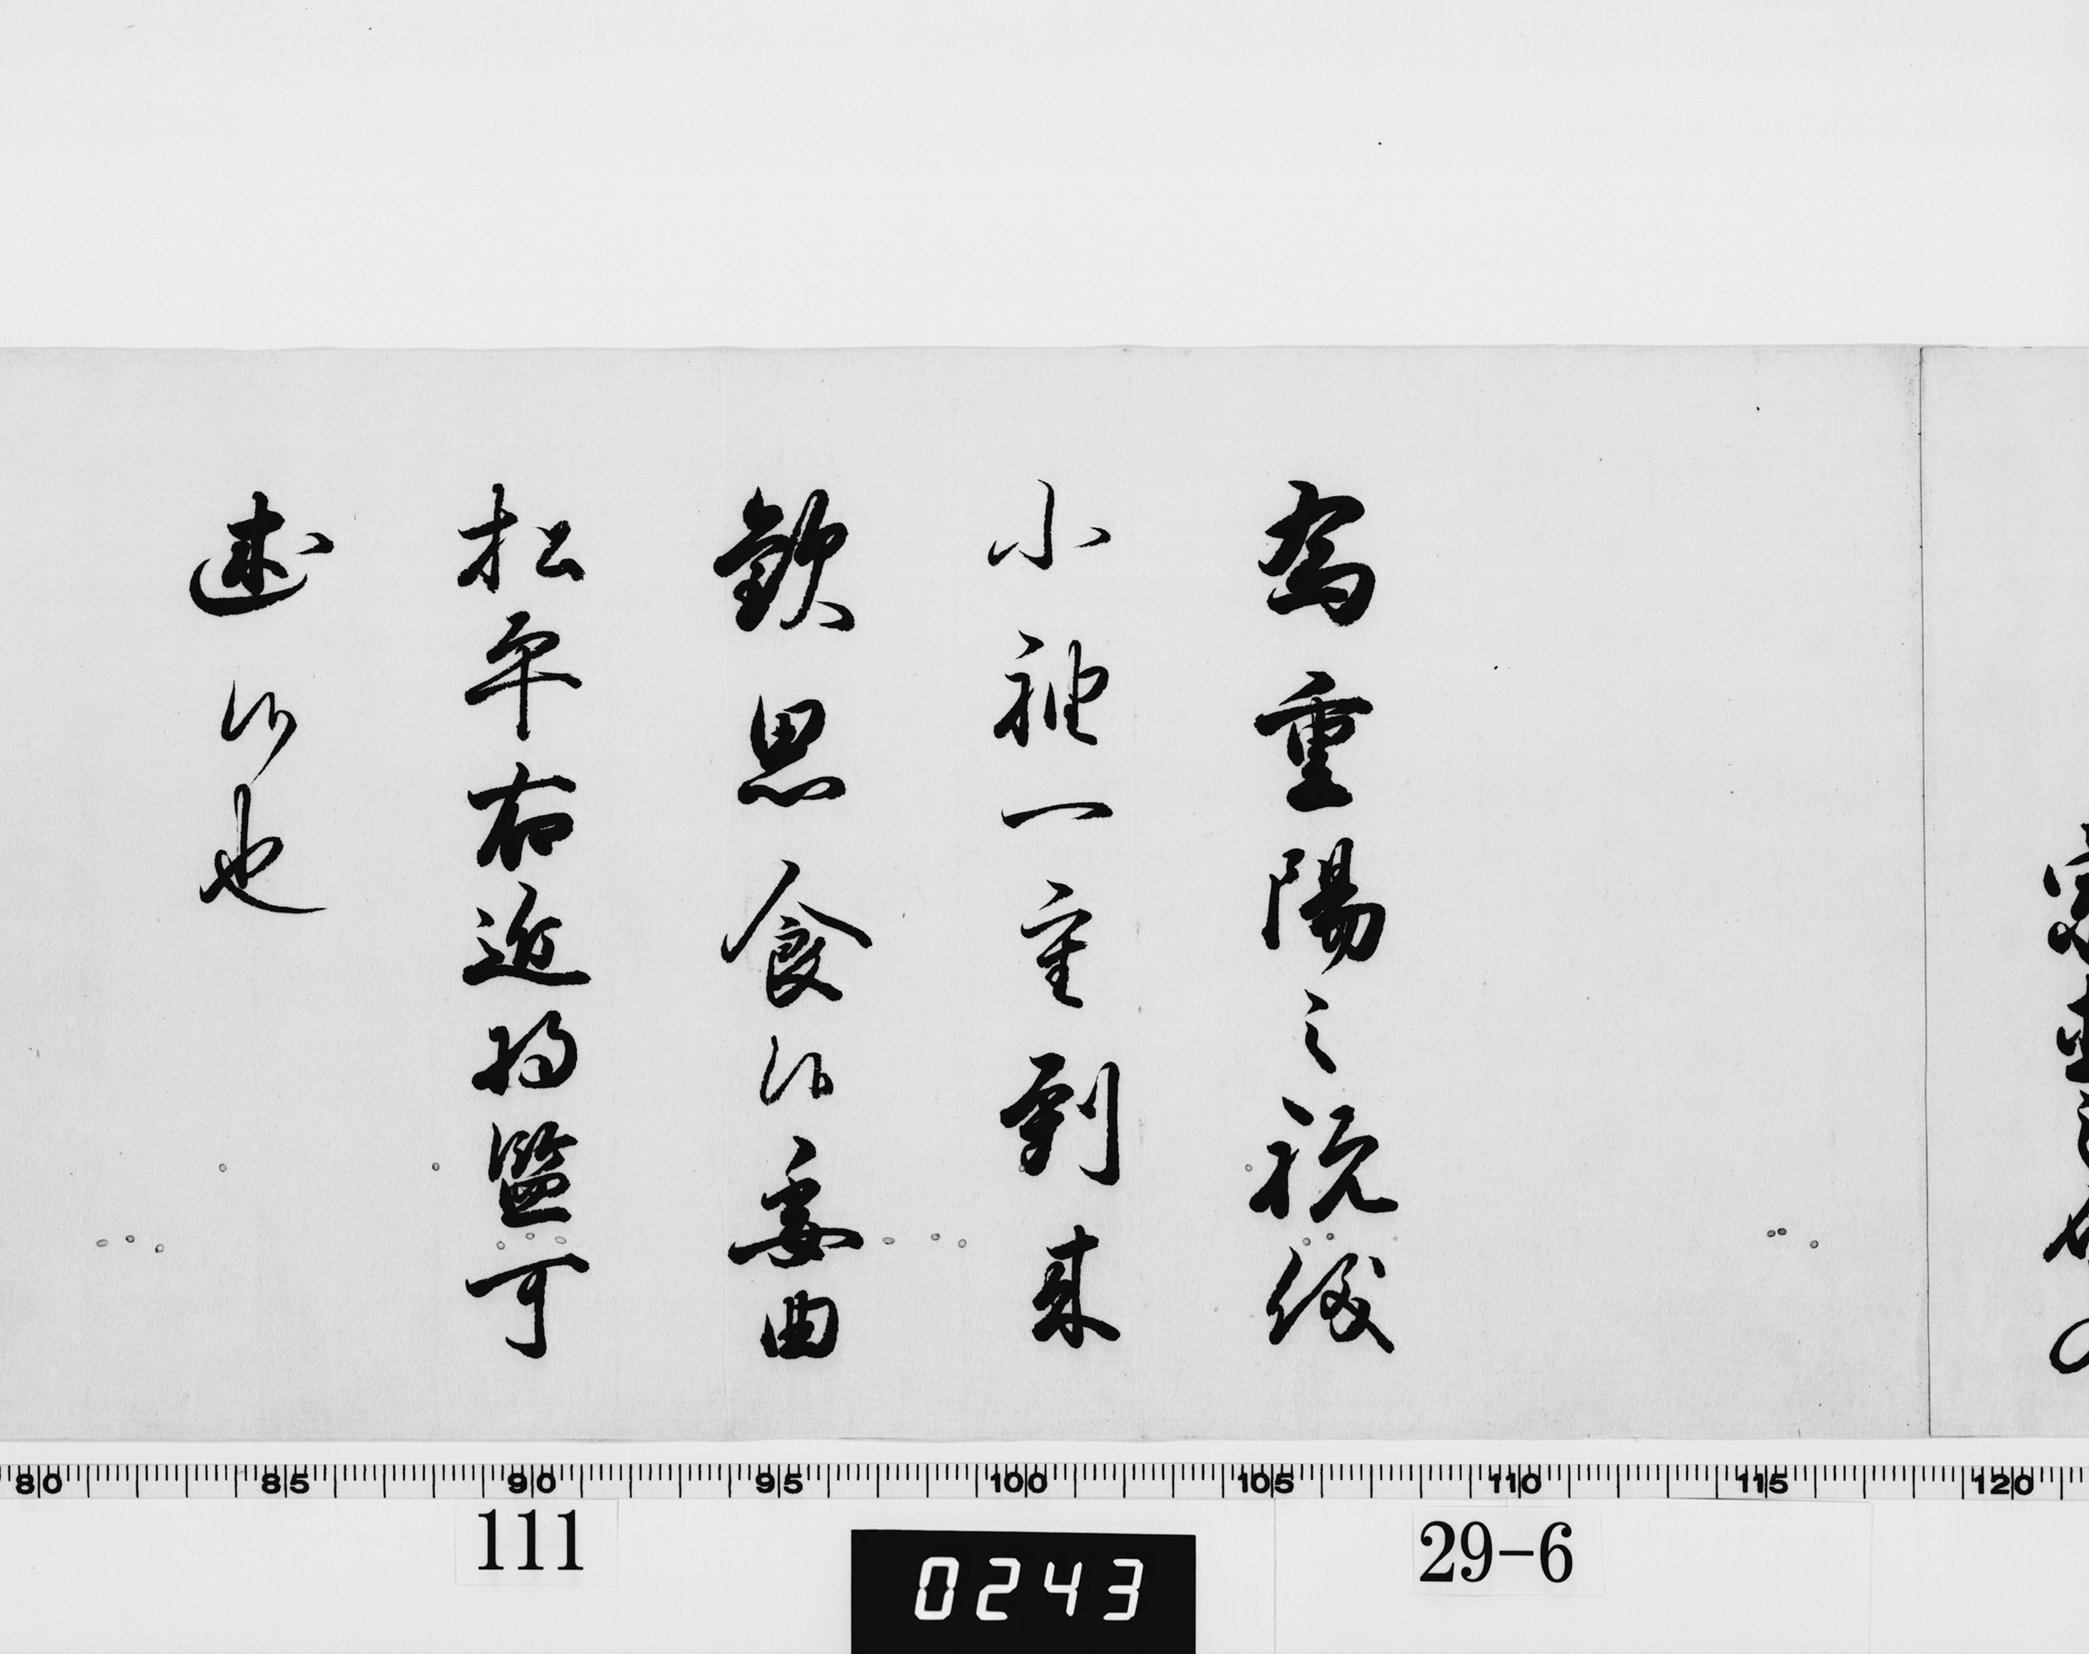 為重陽之祝儀
小袖一重到来
歓思食候委曲
松平右近将監可
述候也
80 85 90 95 100 105 110 115 120
111
0243
29-6